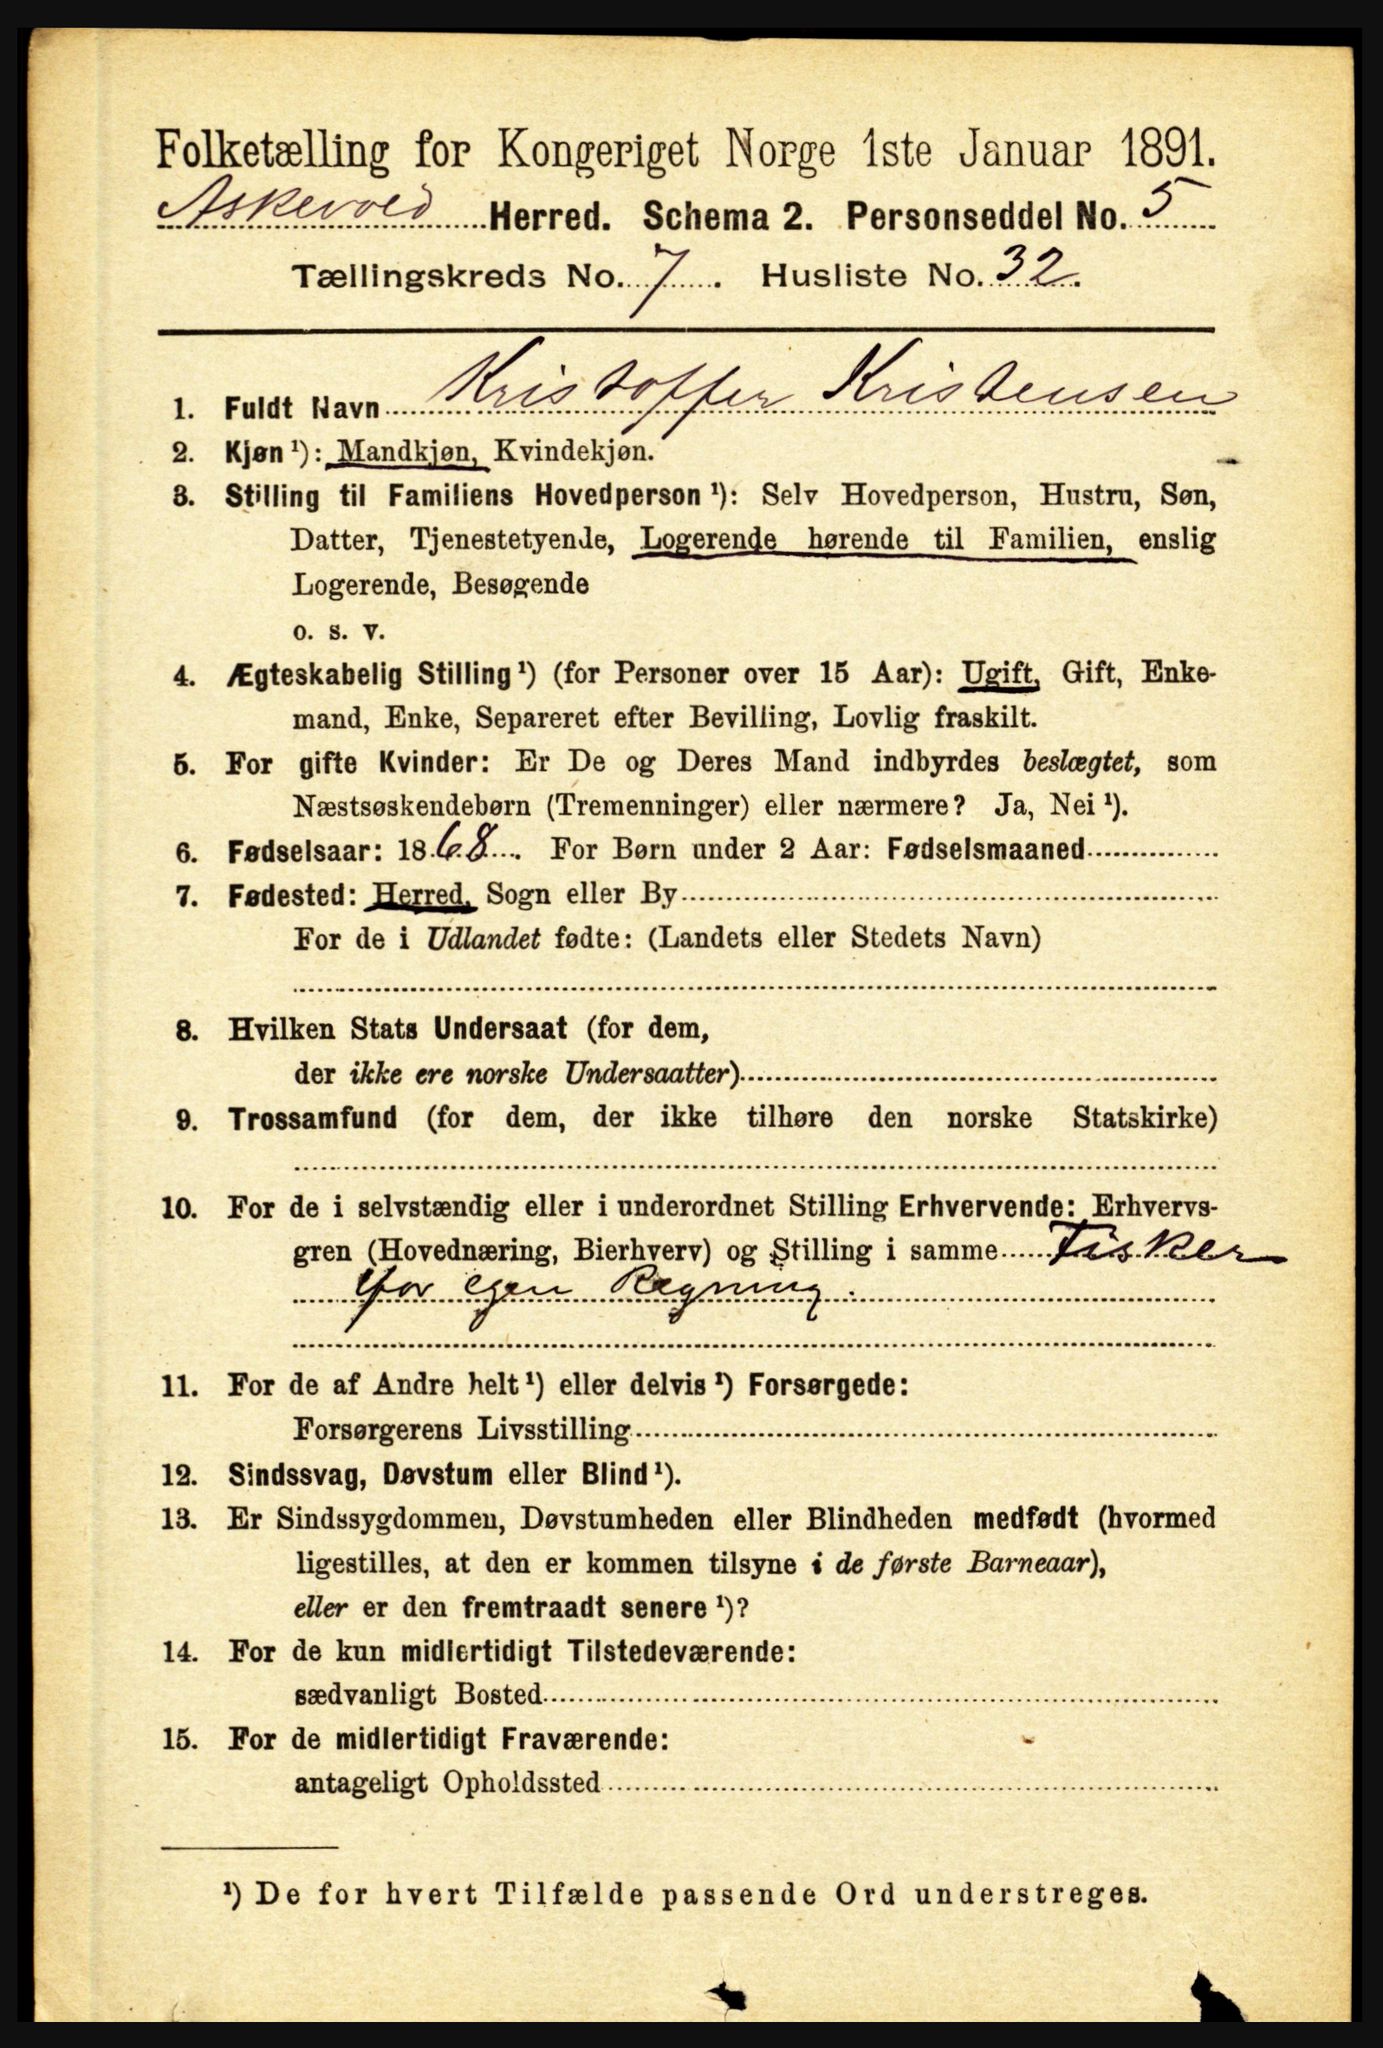 Folketælling for Kongeriget Norge 1ste Januar 1891.
Askevold Herred. Schema 2. Personseddel No. 5
Tællingskreds No. 7. Husliste No. 32.
1. Fuldt Navn Kristoffer Kristensen
2. Kjøn ¹): Mandkjøn, Kvindekjøn.
3. Stilling til Familiens Hovedperson ¹): Selv Hovedperson, Hustru, Søn,
Datter, Tjenestetyende, Logerende hørende til Familien, enslig
Logerende, Besøgende
o. s. v.
4. Ægteskabelig Stilling ¹) (for Personer over 15 Aar): Ugift, Gift, Enke-
mand, Enke, Separeret efter Bevilling, Lovlig fraskilt.
5. For gifte Kvinder: Er De og Deres Mand indbyrdes beslægtet, som
Næstsøskendebørn (Tremenninger) eller nærmere? Ja, Nei ¹).
6. Fødselsaar: 1868. For Børn under 2 Aar: Fødselsmaaned
7. Fødested: Herred, Sogn eller By
For de i Udlandet fødte: (Landets eller Stedets Navn)
8. Hvilken Stats Undersaat (for dem,
der ikke ere norske Undersaatter)
9. Trossamfund (for dem, der ikke tilhøre den norske Statskirke)
10. For de i selvstændig eller i underordnet Stilling Erhvervende: Erhvervs-
gren (Hovednæring, Bierhverv) og Stilling i samme Fisker
for egen Regning.
11. For de af Andre helt ¹) eller delvis ¹) Forsørgede:
Forsørgerens Livsstilling
12. Sindssvag, Døvstum eller Blind ¹).
13. Er Sindssygdommen, Døvstumheden eller Blindheden medfødt (hvormed
ligestilles, at den er kommen tilsyne i de første Barneaar),
eller er den fremtraadt senere ¹)?
14. For de kun midlertidigt Tilstedeværende:
sædvanligt Bosted
15. For de midlertidigt Fraværende:
antageligt Opholdssted
¹) De for hvert Tilfælde passende Ord understreges.